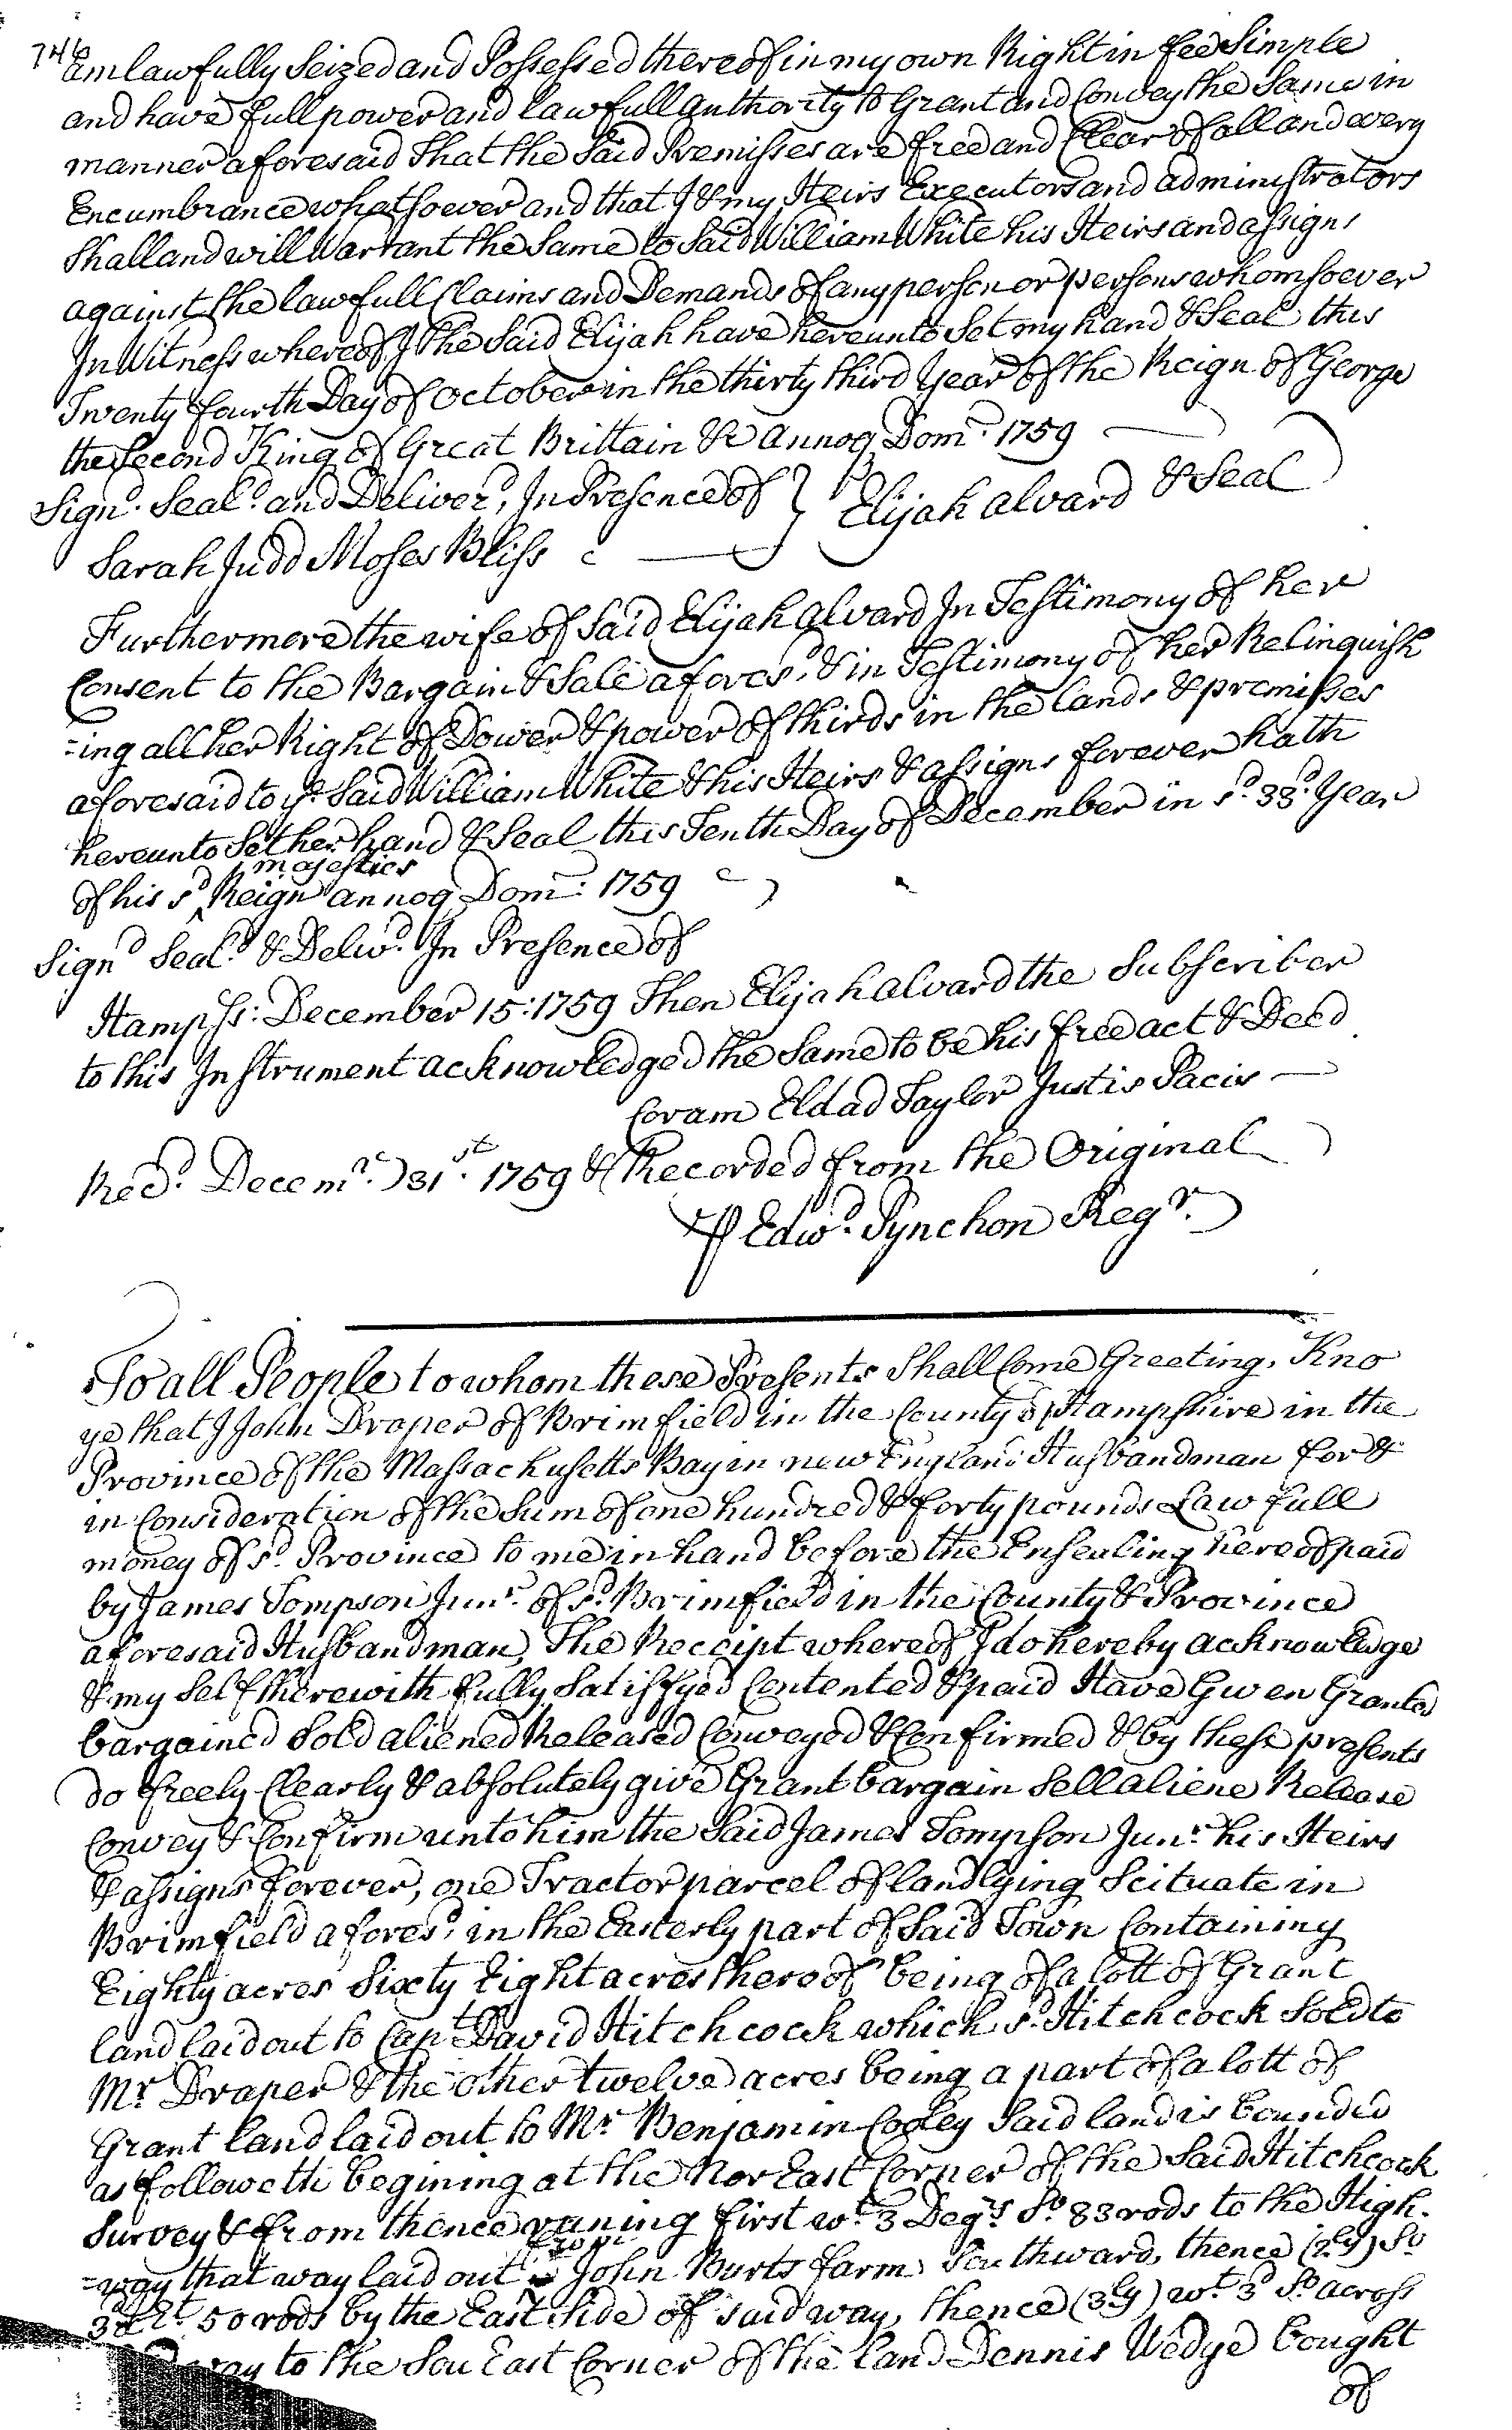 746
am lawfully Seized and Possessed thereof in my own Right in fee Simple
and have full power and lawfull authority to Grant and Convey the Same in
manner aforesaid That the Said Premisses are free and Clear of all and every
Encumbrance whatsoever and that I & my Heirs Executors and administrators
Shall and will Warrant the Same to Said William White his Heirs and assigns
against the lawfull Claims and Demands of any person or persons whomsoever
In Witness whereof I the Said Elijah have hereunto Set my hand & Seal this
Twenty fourth Day of October in the thirty third Year of the Reign of George
the Second King of Great Brittain &c annoq Dom: 1759
Signd. Seald. and Deliverd, In Presence of } Elijah alvard & Seal
Sarah Judd Moses Bliss
Furthermore the wife of Said Elijah alvard In Testimony of her
Consent to the Bargain & Sale aforesd. & in Testimony of her Relinquish
=ing all her Right of Dower & power of thirds in the lands & premisses
aforesaid to ye. Said William White & his Heirs & assigns forever hath
hereunto Set her hand & Seal this Tenth Day of December in sd. 33d. Year
majesties
of his sd ^ Reign annoq Dom: 1759
Signd Seald. & Delivd. In Presence of
Hampss: December 15: 1759 Then Elijah alvard the Subscriber
to this Instrument acknowledged the Same to be his free act & Deed
Coram Eldad Taylor Justis Pacis
Recd. Decemr. 31st. 1759 & Recorded from the Original
P Edwd. Pynchon Regr.
To all People to whom these Presents Shall Come Greeting, Kno
ye that I John Draper of Brimfield in the County of Hampshire in the
Province of the Massachusetts Bay in new England Husbandman for &
in Consideration of the Sum of one hundred & forty pounds Law full
money of sd. Province to me in hand before the Ensealing hereof paid
by James Tompson Junr. of sd. Brimfield in the County & Province
aforesaid Husbandman, The Receipt whereof I do hereby acknowledge
& my Self therewith fully Satisfyed Contented & paid Have Given Granted
bargained Sold aliened Released Conveyed & Confirmed & by these presents
do freely Clearly & absolutely give Grant bargain Sell aliene Release
Convey & Confirm unto him the Said James Tompson Junr. his Heirs
& assigns forever, one Tract or parcel of land lying Scituate in
Brimfield aforesd, in the Easterly part of Said Town Containing
Eighty acres Sixty Eight acres thereof being of a lott of Grant
land laid out to Capt David Hitchcock which sd. Hitchcock Sold to
Mr Draper & the other twelve acres being a part of a lott of
Grant land laid out to Mr Benjamin Cooley Said land is bounded
as followeth begining at the Nor East Corner of the Said Hitchcock
Survey & from thence runing first wt. 3 Degrs So 83 rods to the High-
from
=way that way laid out John Burts farm Southward, thence (2ly) So
3d Et 50 rods by the East Side of said way, thence (3ly) wt. 3d So across
way to the Sou East Corner of the land Dennis Wedge bought
of